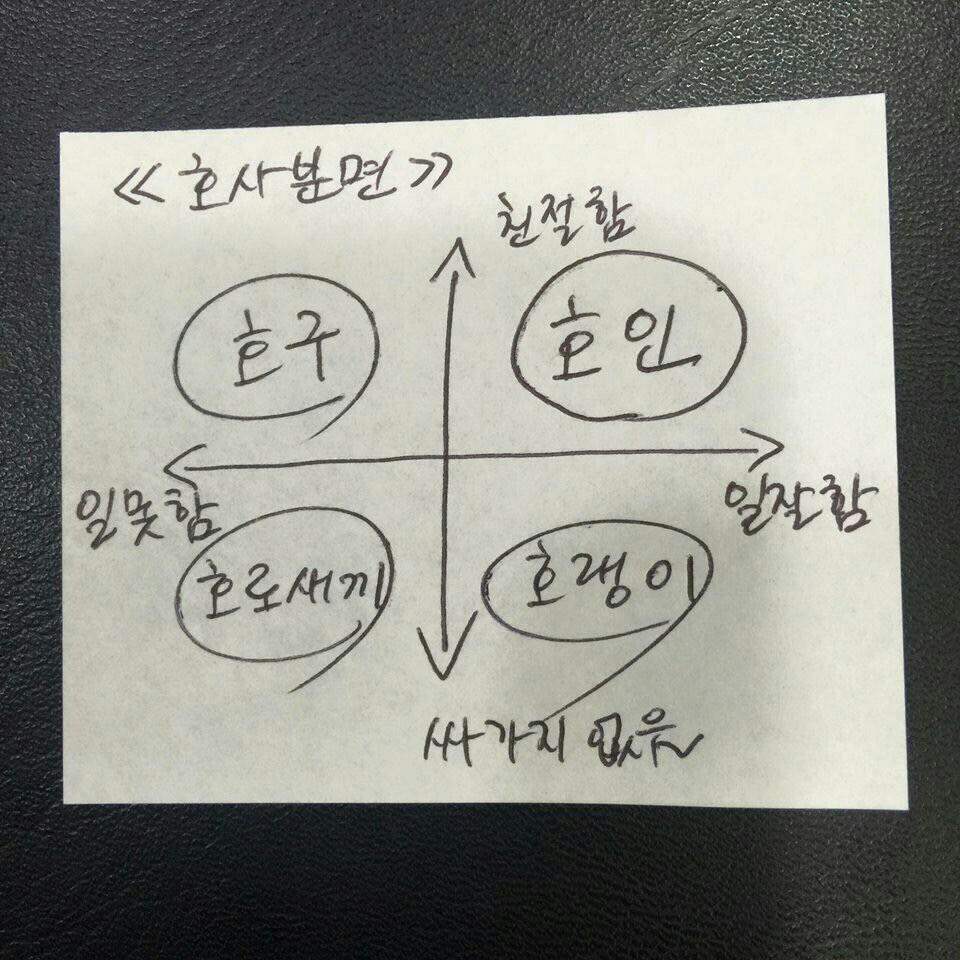 <<호사분면>>
친절함
호구 호인
일못함 일잘함
호로새끼 호랭이
싸가지 없음